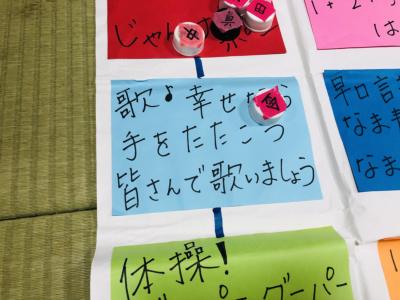 じゃん
1+2
は
歌♪幸せなら
手をたたこう
皆さんで歌いましょう
早口言
なま青
なま
体操!
グーパー